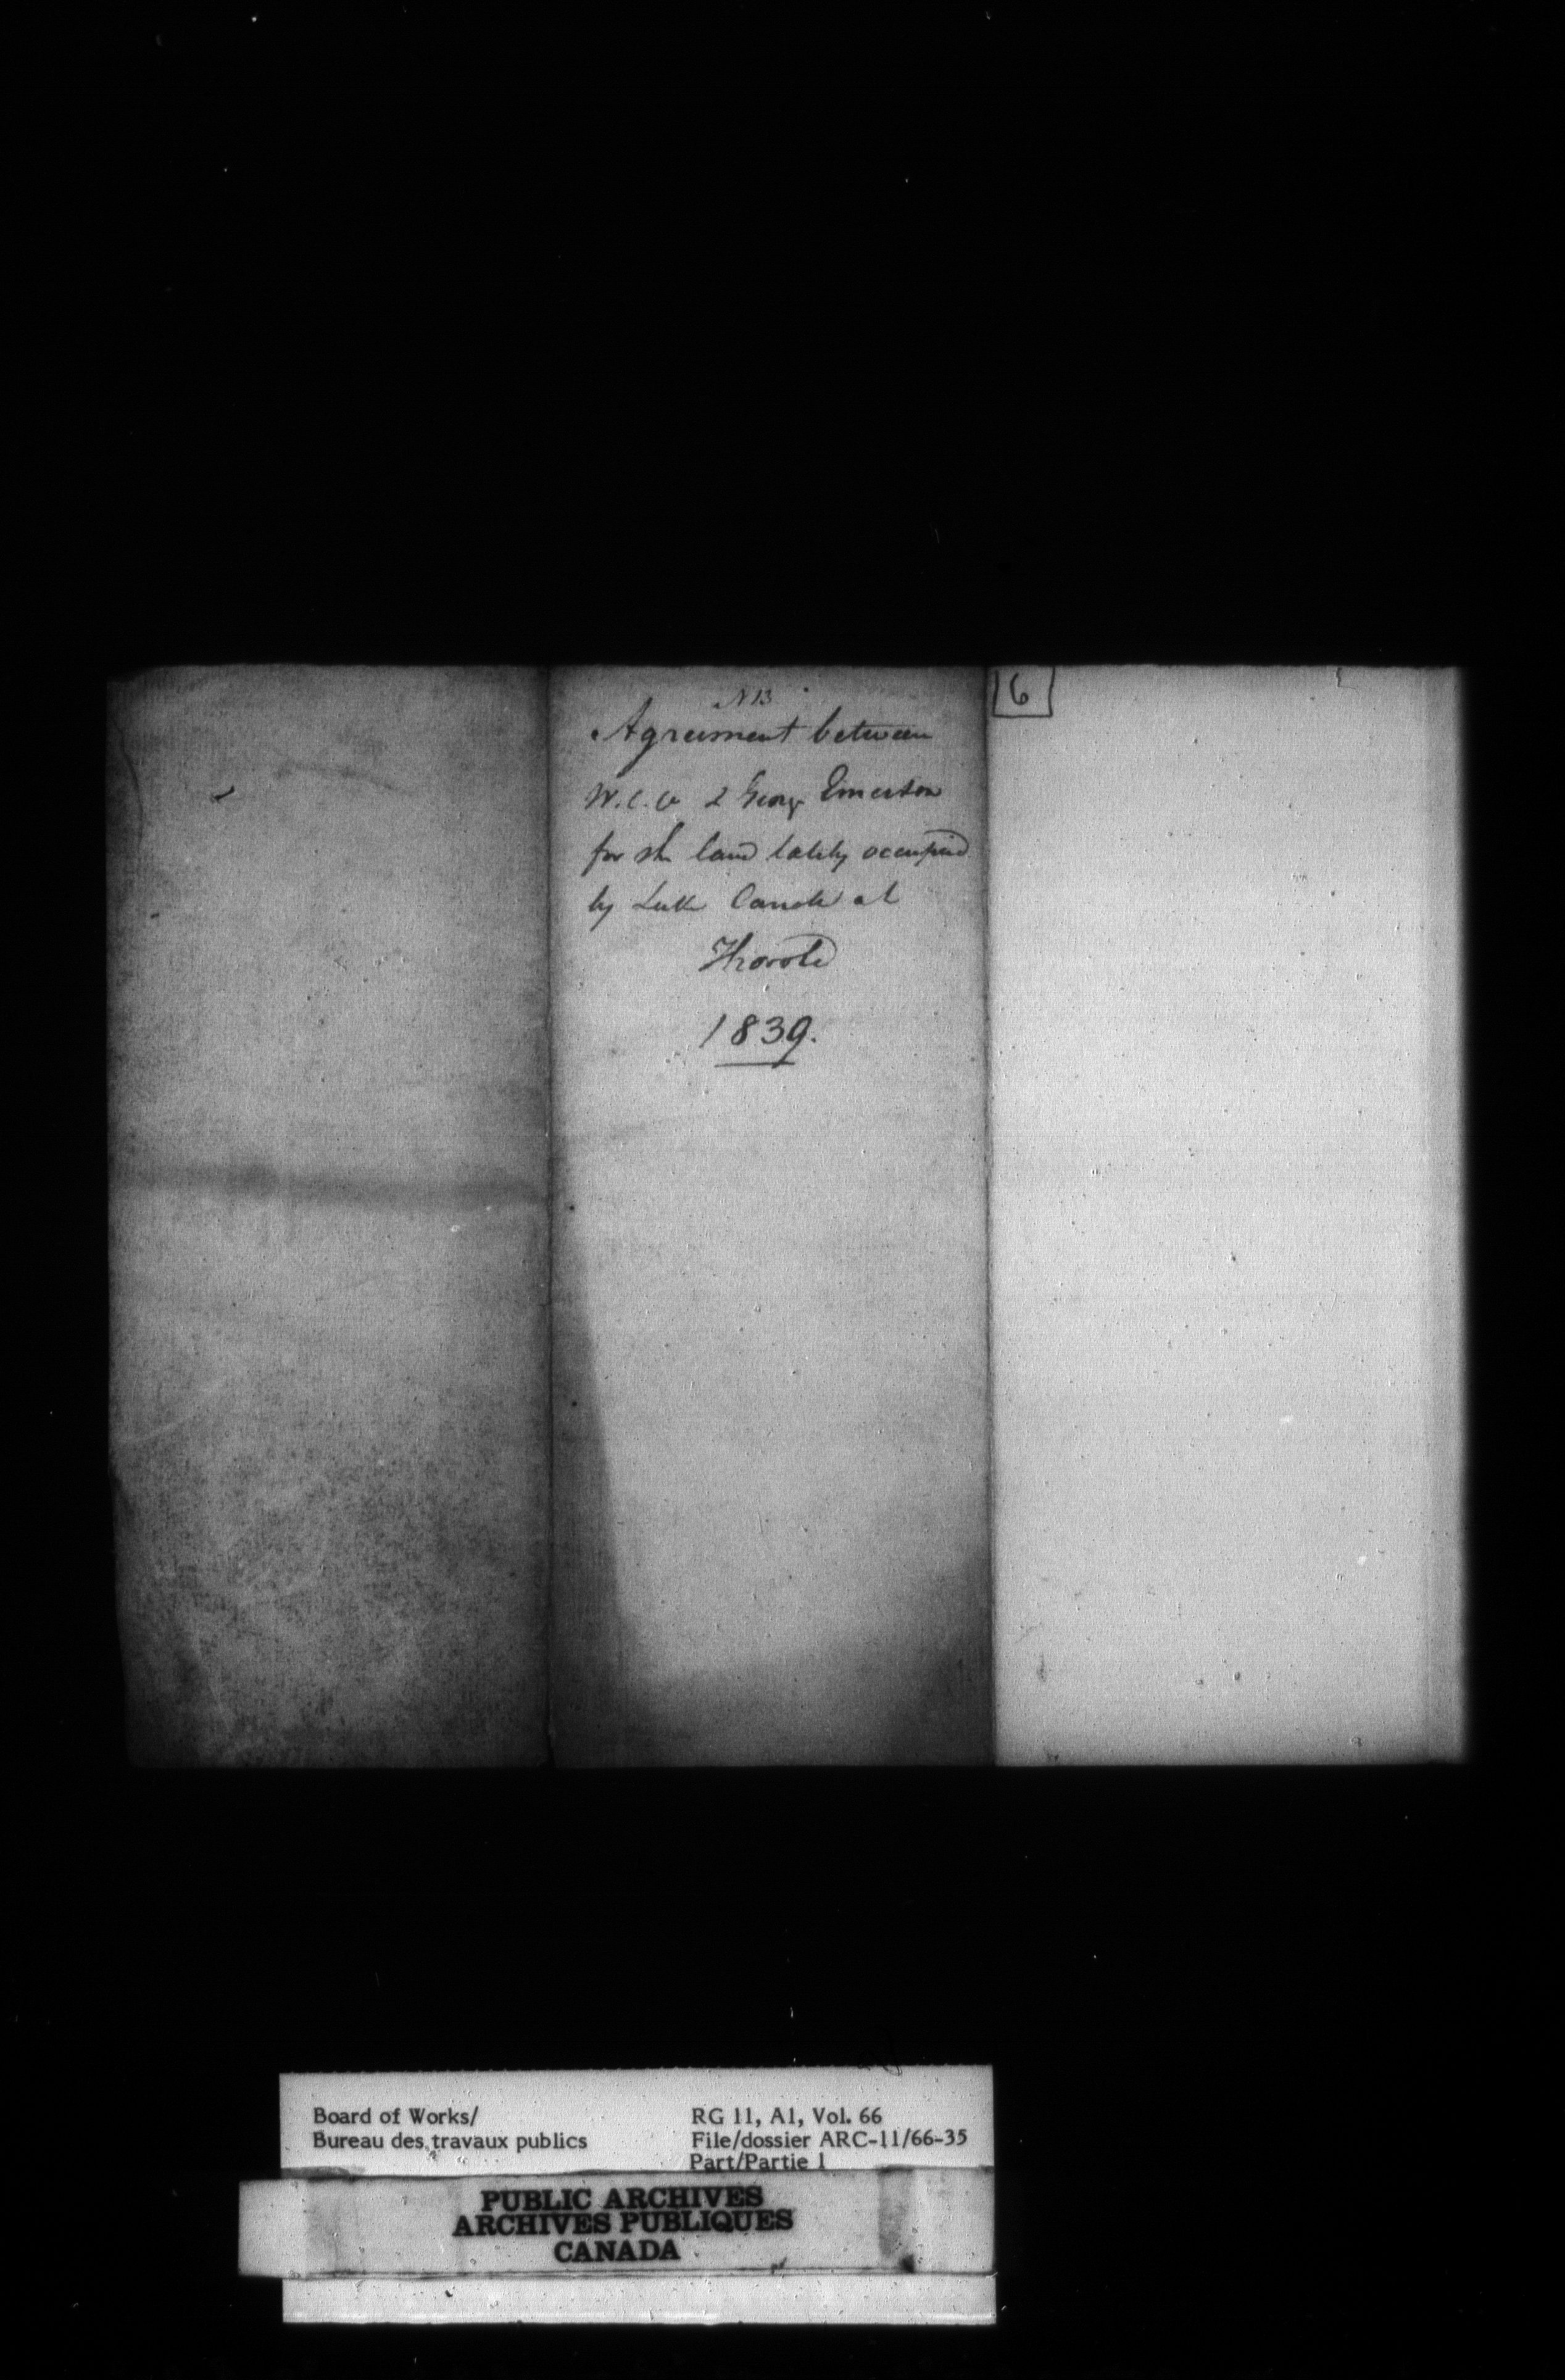 N 13
Agreement between
W.C.Co & George Emerson
for the land lately occupied
by Luke Carrole at
Thorold
1839.
6
Board of Works/
Bureau des travaux publics
RG 11, A1, Vol. 66
File/dossier ARC-11/66-35
Part/Partie 1
PUBLIC ARCHIVES
ARCHIVES PUBLIQUES
CANADA